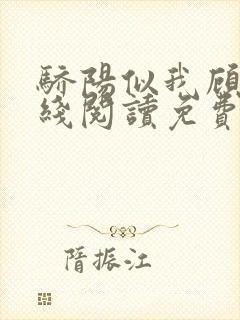 驕陽似我顧
綫閱讀免費
隋振江